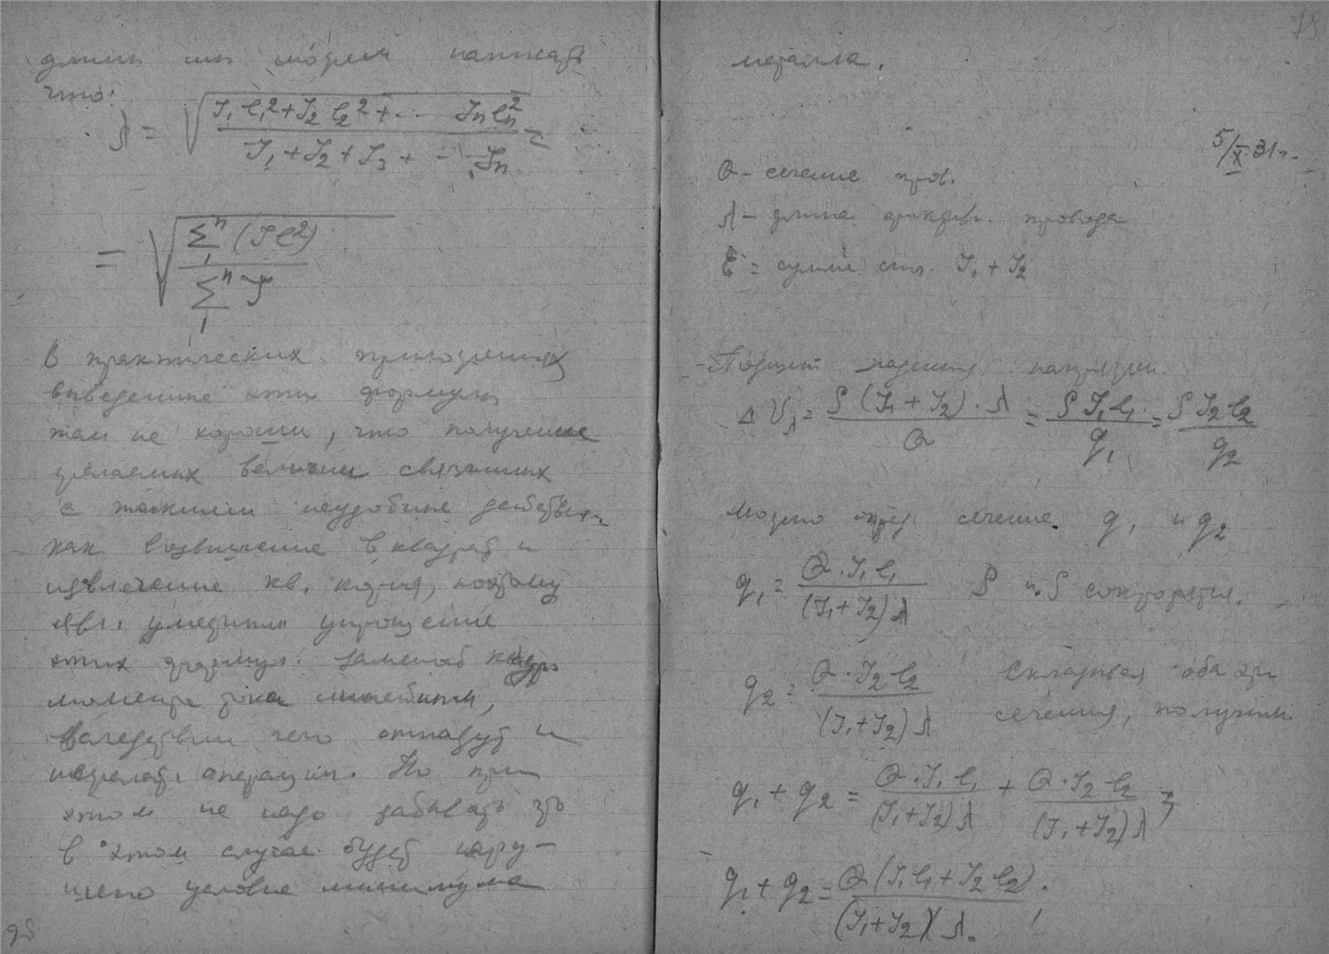 длины мы можем написать
что:
λ = √(J₁l₁² + J₂l₂² + ... Jₙlₙ² / J₁ + J₂ + J₃ + ... Jₙ) =
= √(Σ₁ⁿ (Jl²) / Σ₁ⁿ J)
В практических приложениях
выведенные эти формулы
тем не хороши, что получение
желаемых величин связанных
с такими неудобные действ.
как возвышение в квадрат и
извлечение кв. корня, поэтому
явл. упрощение
этих формул. заменой квадр.
момента тока линейным,
вследствии чего отпадут и
операции. Но при
этом не надо забывать
в этом случае будет нару-
шено условие минимума
98
79
металла.
5/X 31 г.
Q - сечение пров.
λ - длина фиктивн. провода
= сумме J₁ + J₂
падения напряжен.
Δ Vλ = ρ (J₁ + J₂) · λ / Q = ρ J₁ l₁ / q₁ = ρ J₂ l₂ / q₂
Можно опред сечение q₁ и q₂
q₁ = Q · J₁ l₁ / (J₁ + J₂) λ ρ и ρ сократятся.
q₂ = Q · J₂ l₂ / (J₁ + J₂) λ Складывая оба эти
сечения, получим
q₁ + q₂ = Q · J₁ l₁ / (J₁ + J₂) λ + Q · J₂ l₂ / (J₁ + J₂) λ ;
q₁ + q₂ = Q (J₁ l₁ + J₂ l₂) / (J₁ + J₂) λ.